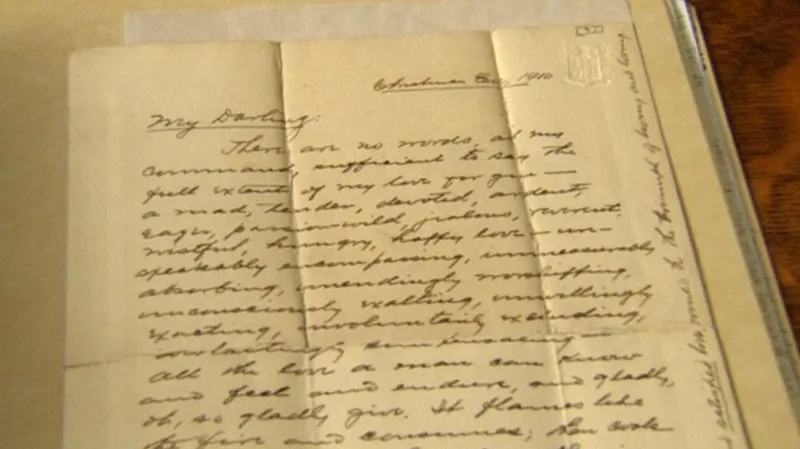 Christmas Eve, 1910
My Darling:
There are no words, at my
command, sufficient to say the
full extent of my love for you —
a mad, tender, devoted, ardent,
eager, passion-wild, jealous, reverent,
wistful, hungry, happy love — un-
speakably encompassing, immeasurably
absorbing, unendingly worshipping,
unconsciously exalting, unwillingly
exacting, involuntarily excluding,
everlastingly
All the love a man can know
and feel and endure, and gladly,
oh, so gladly give. It flames like
the fire and consumes; then
and satisfied love, comes the triumph of loving and being